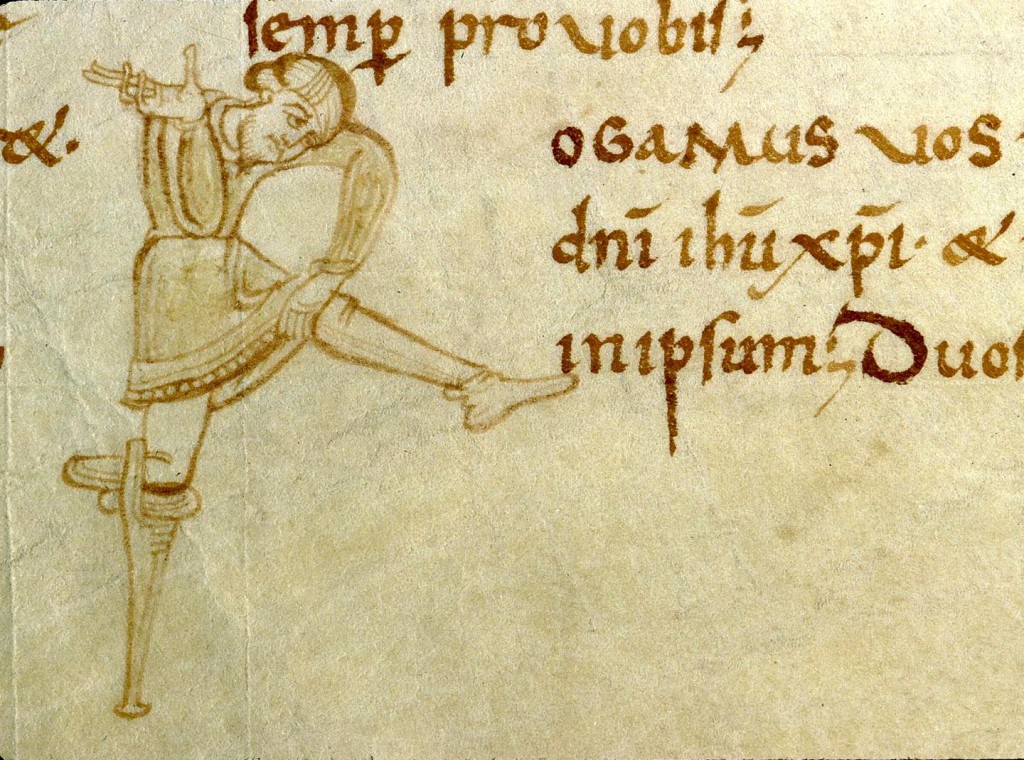 semp ꝓ uobis;
&.
OGAMUS UOS
dnī ihū xp̄i· &
inipsum; Duos